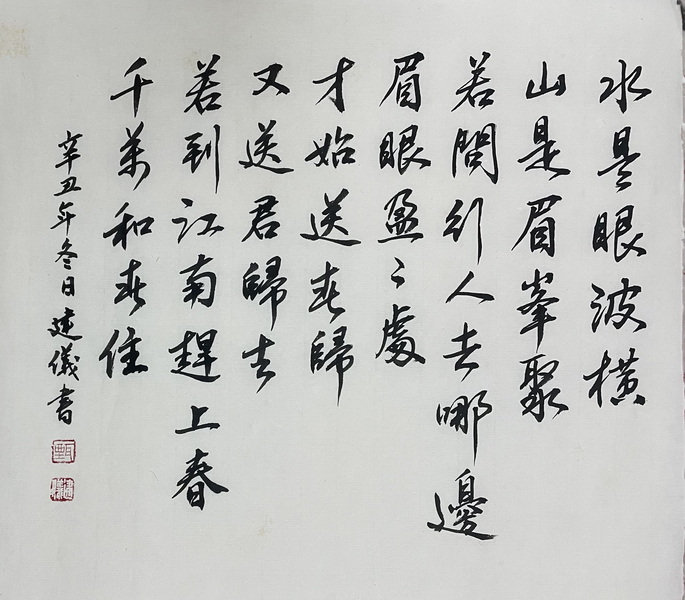 水是眼波橫
山是眉峯聚
若問行人去哪邊
眉眼盈〻處
才始送春歸
又送君歸去
若到江南趕上春
千萬和春住
辛丑年冬日建儀書